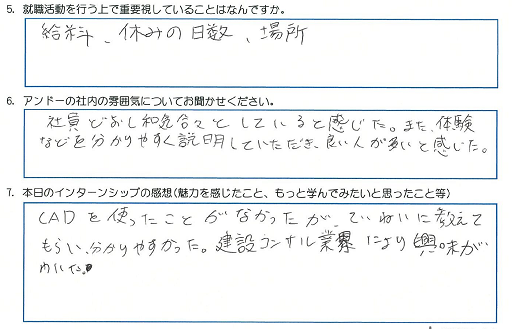 5. 就職活動を行う上で重要視していることはなんですか。
給料、休みの日数、場所
6. アンドーの社内の雰囲気についてお聞かせください。
社員どおし和気合々としていると感じた。また、体験
などを分かりやすく説明していただき、良い人が多いと感じた。
7. 本日のインターンシップの感想(魅力を感じたこと、もっと学んでみたいと思ったこと等)
CADを使ったことがなかったが、ていねいに教えて
もらい、分かりやすかった。建設コンサル業界により興味が
わいた。